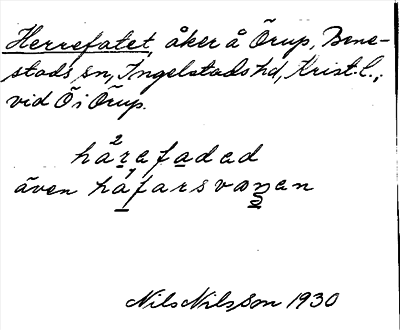 Herrefatet, åker å Örup, Bene-
stads sn, Ingelstads hd, Krist. l.,
vid Ö i Örup.
hå²rafadad
även hå¹farsvaŋan
Nils Nilsson 1930